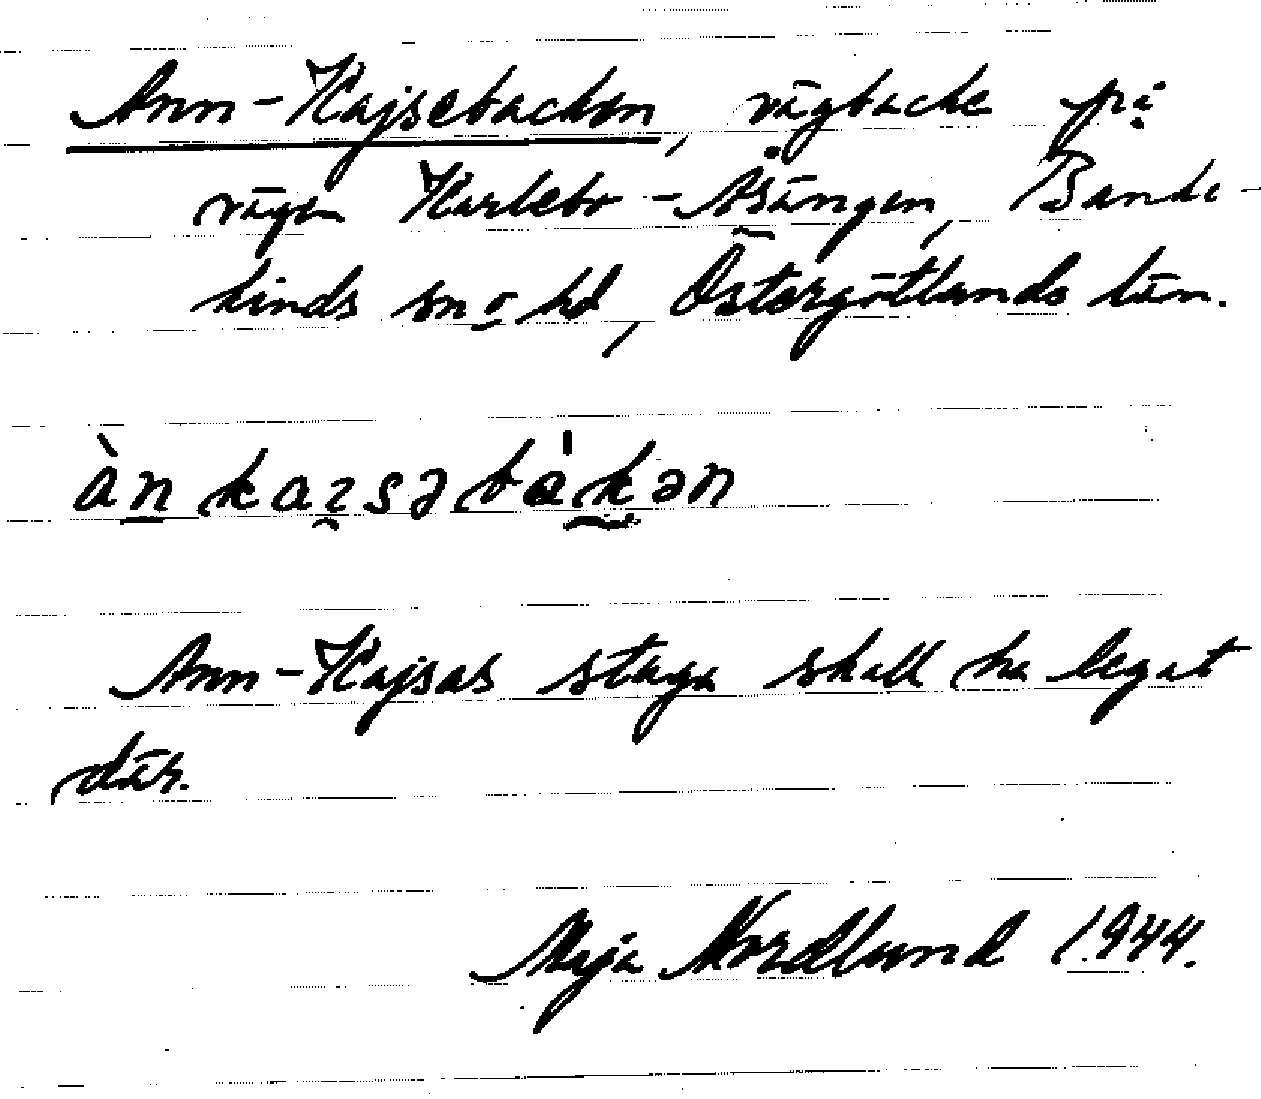 Ann-Kajsebacken, vägbacke på
vägen Karlebo - Åsängen, Bande-
kinds sn o hd, Östergötlands län.
àn kaɪ̯səbàkən
Ann-Kajsas stuga skall ha legat
där.
Maja Nordlund 1944.